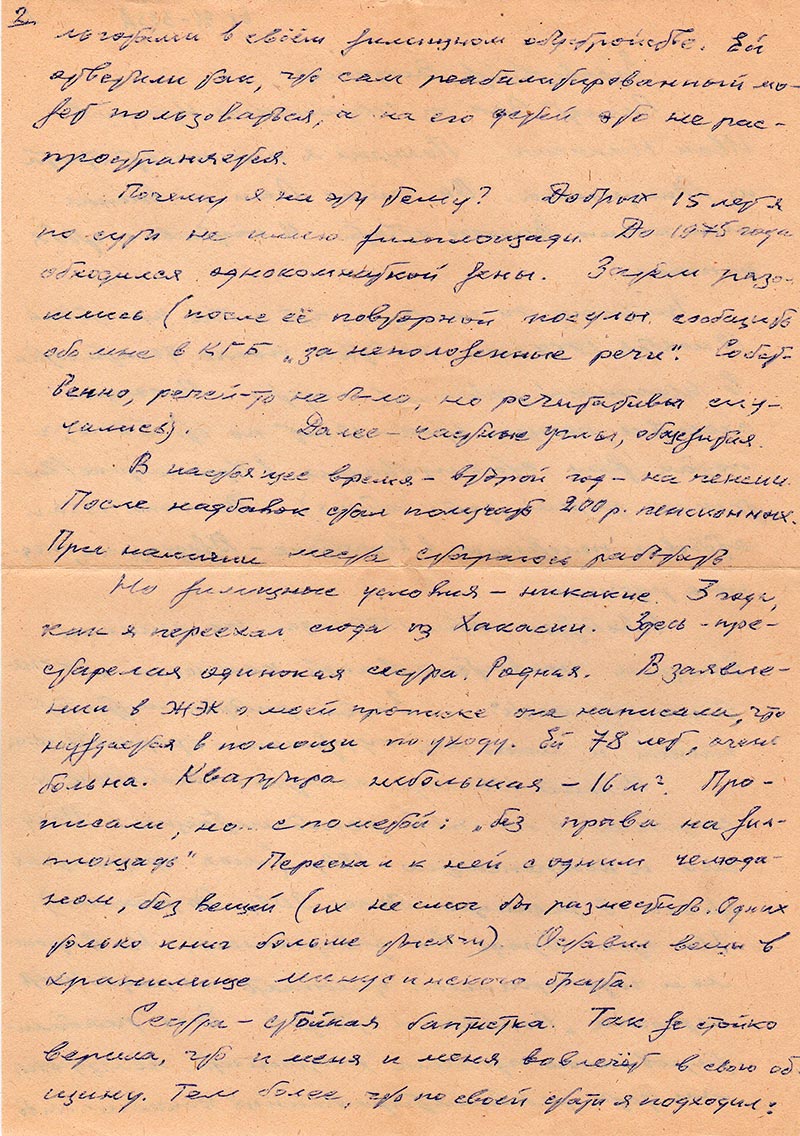 2
льготами в своём жилищном обустройстве. Ей
ответили так, что сам реабилитированный мо-
жет пользоваться, а на его детей это не рас-
пространяется.
Почему я на эту тему? Добрых 15 лет я
по сути не имею жилплощади. До 1975 года
обходился однокомнаткой жены. Затем разо-
шлись (после её повторной посулы сообщить
обо мне в КГБ „за неположенные речи". Собст-
венно, речей-то не было, но речитативы слу-
чались).    Далее – частные углы, общежития.
В настоящее время – второй год – на пенсии.
После надбавок стал получать 200 р. пенсионных.
При наличии места стараюсь работать.
Но жилищные условия – никакие. 3 года,
как я переехал сюда из Хакасии. Здесь – пре-
старелая одинокая сестра. Родная. В заявле-
нии в ЖЭК о моей прописке она написала, что
нуждается в помощи по уходу. Ей 78 лет, очень
больна. Квартира небольшая – 16 м². Про-
писали, но.. с пометой: „без права на жил-
площадь" Переехал к ней с одним чемода-
ном, без вещей (их не смог бы разместить. Одних
только книг больше тысячи). Оставил вещи в
хранилище минусинского брата.
Сестра – стойная баптистка. Так же стойко
верила, что и меня и меня вовлечёт в свою об-
щину. Тем более, что по своей стати я подходил: